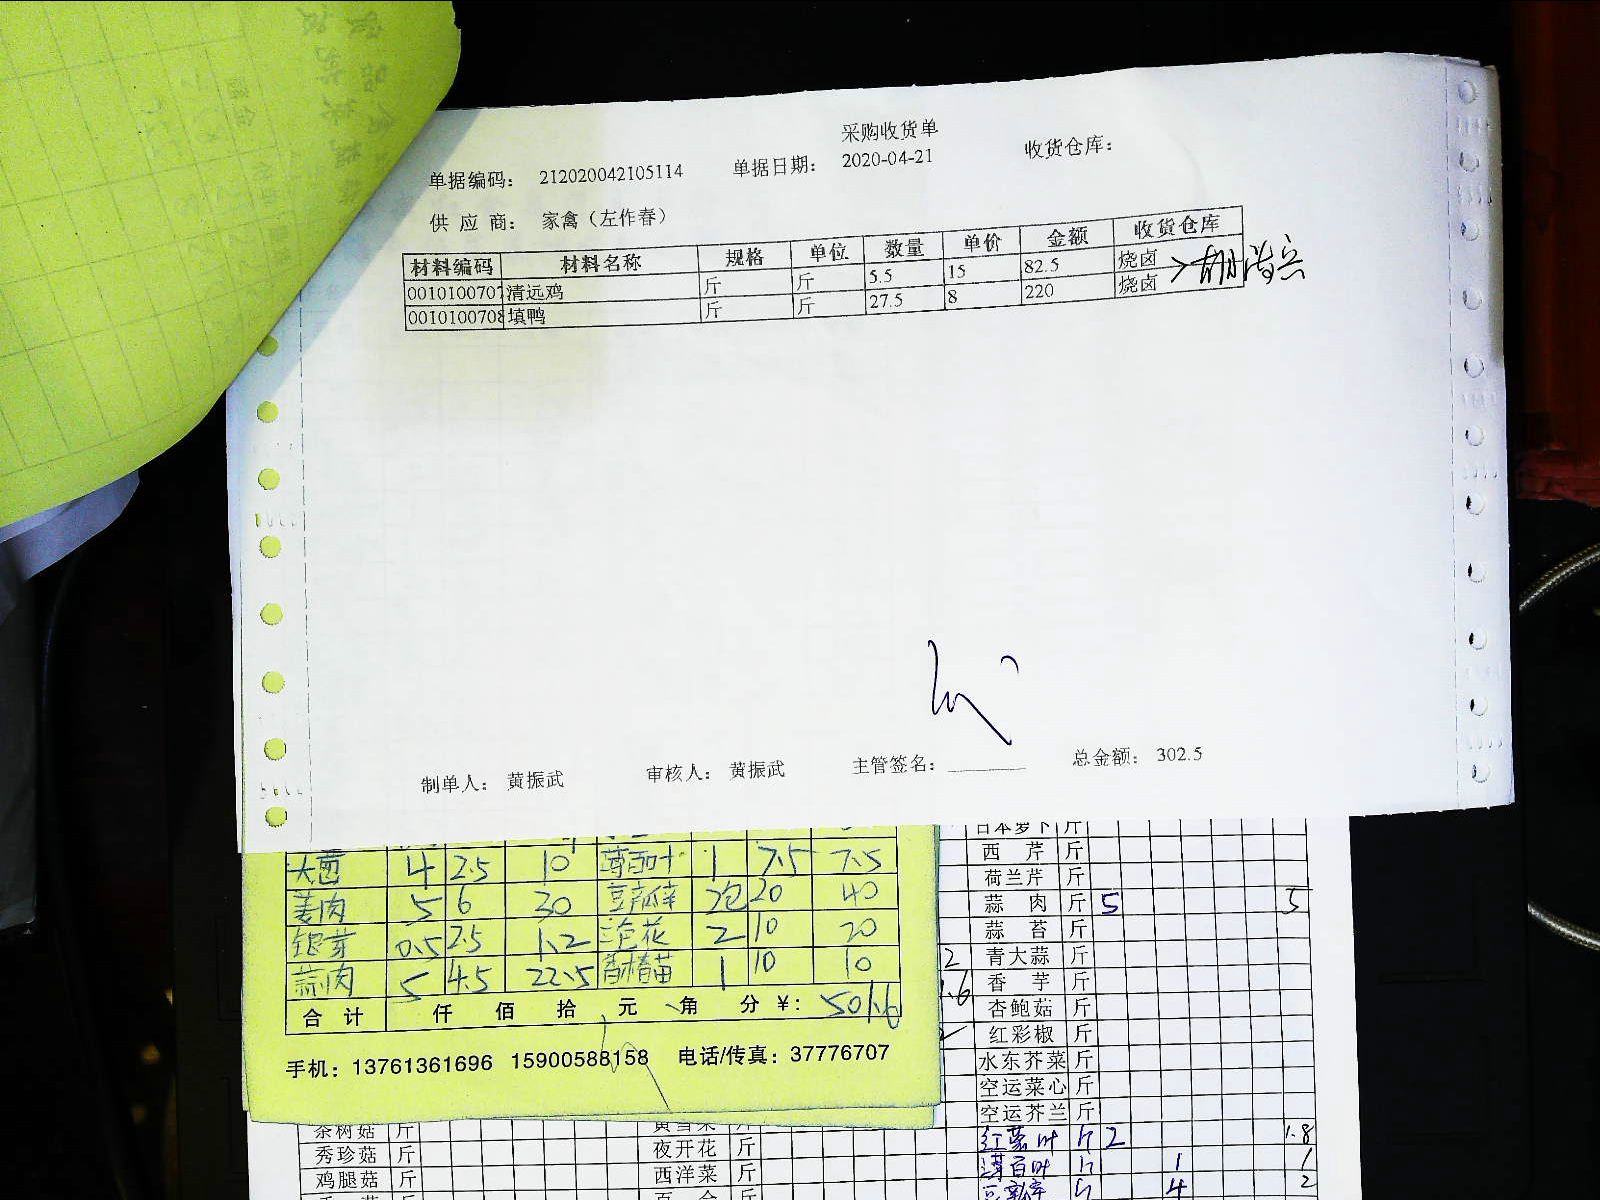 采购收货单
单据编码： 212020042105114 单据日期： 2020-04-21 收货仓库：
供 应 商： 家禽（左作春）
材料编码 材料名称 规格 单位 数量 单价 金额 收货仓库
0010100707 清远鸡 斤 斤 5.5 15 82.5 烧卤
0010100708 填鸭 斤 斤 27.5 8 220 烧卤
制单人： 黄振武 审核人： 黄振武 主管签名： 总金额： 302.5
4 2.5 10 1 7.5 7.5
姜肉 5 6 30 20 40
银芽 0.5 2.5 1.2 2 10 20
蒜肉 5 4.5 22.5 1 10 10
合 计 仟 佰 拾 元 角 分 ¥： 501.6
手机：13761361696 15900588158 电话/传真：37776707
日本萝卜 斤
西 芹 斤
荷兰芹 斤
蒜 肉 斤 5 5
蒜 苔 斤
青大蒜 斤
香 芋 斤
杏鲍菇 斤
红彩椒 斤
水东芥菜 斤
空运菜心 斤
空运芥兰 斤
红薯叶 斤 2 1.8
薄百叶 斤 1 1
4 2
茶树菇 斤
秀珍菇 斤 夜开花 斤
鸡腿菇 斤 西洋菜 斤